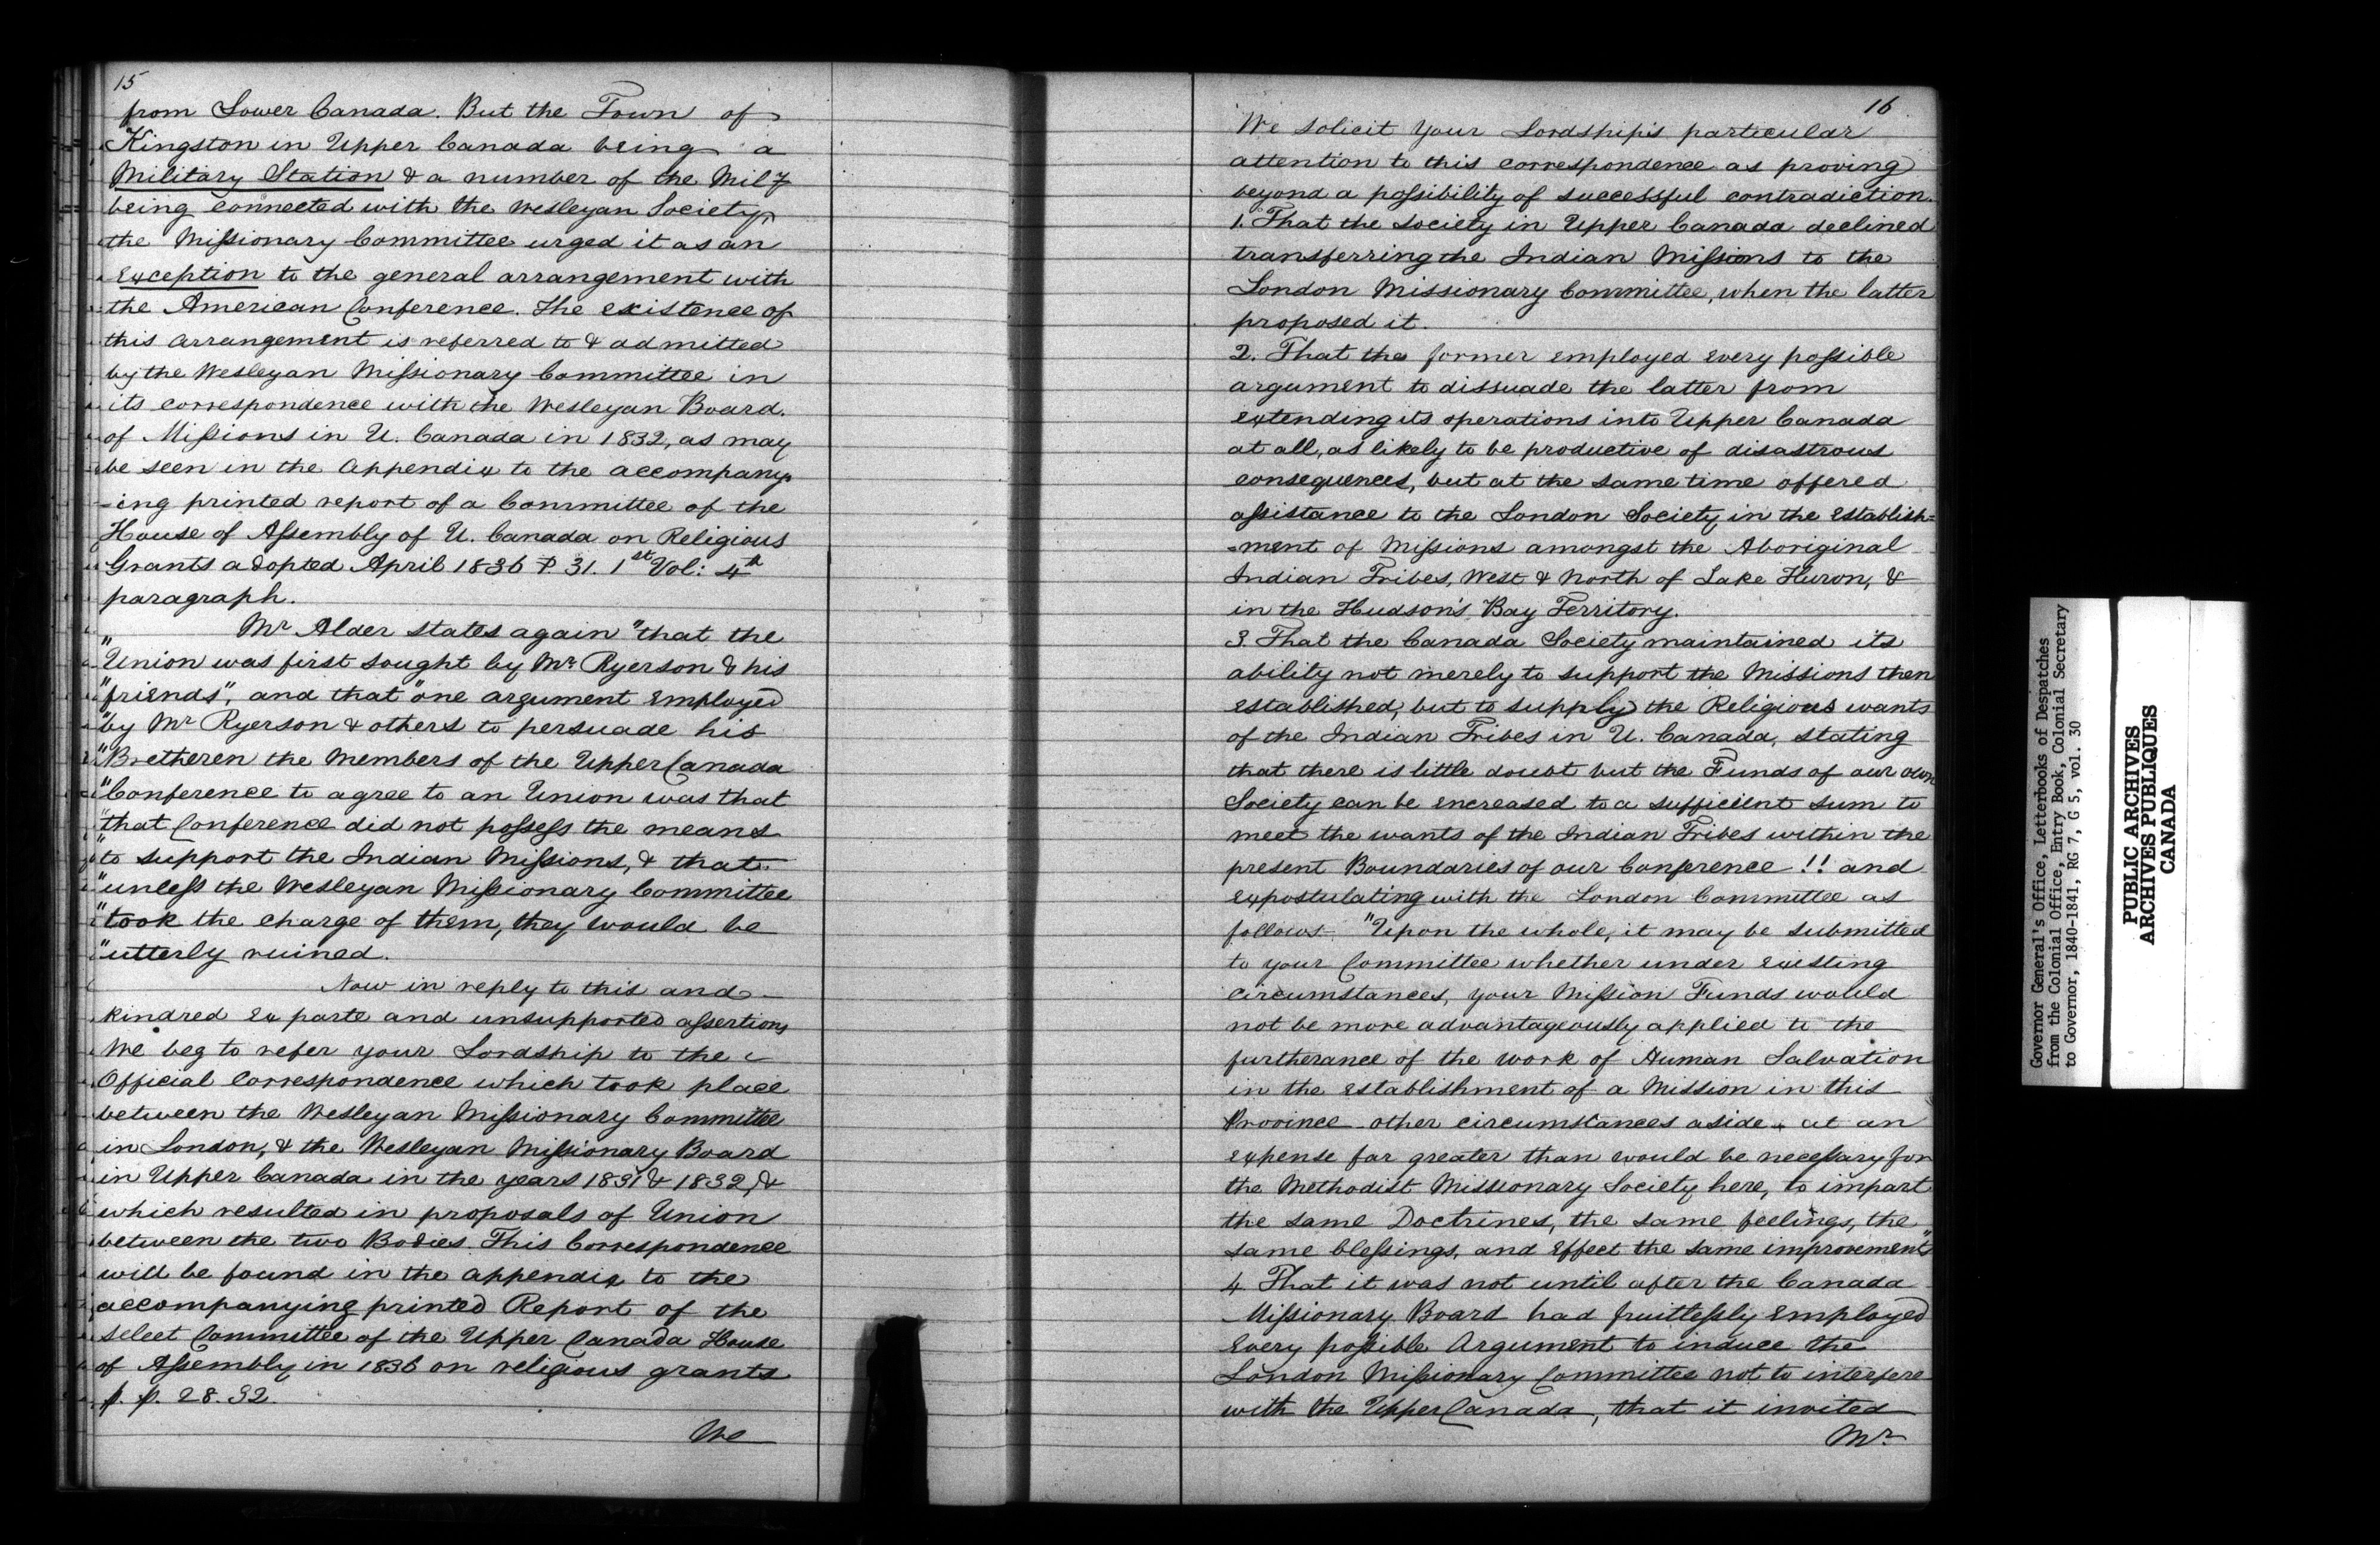 15
from Lower Canada. But the Town of
Kingston in Upper Canada being a
Military Station & a number of the Mil'y
being connected with the Wesleyan Society,
the Missionary Committee urged it as an
exception to the general arrangement with
the American Conference. The existence of
this arrangement is referred to & admitted
by the Wesleyan Missionary Committee in
its correspondence with the Wesleyan Board.
of Missions in U. Canada in 1832, as may
be seen in the appendix to the accompany
-ing printed report of a Committee of the
House of Assembly of U. Canada on Religious
Grants adopted April 1836 P. 31. 1st Vol: 4th
paragraph.
Mr Alder states again "that the
"Union was first sought by Mr Ryerson & his
"friends", and that "one argument employed
"by Mr Ryerson & others to persuade his
"Bretheren the Members of the Upper Canada
"Conference to agree to an Union was that
"that Conference did not possess the means
"to support the Indian Missions, & that
"unless the Wesleyan Missionary Committee
"took the charge of them, they would be
"utterly ruined.
Now in reply to this and
kindred ex parte and unsupported assertions
We beg to refer your Lordship to the
Official Correspondence which took place
between the Wesleyan Missionary Committee
in London, & the Wesleyan Missionary Board
in Upper Canada in the years 1831 & 1832, &
which resulted in proposals of Union
between the two Bodies. This Correspondence
will be found in the appendix to the
accompanying printed Report of the
select Committee of the Upper Canada House
of Assembly in 1836 on religious grants
p. p. 28. 32.
We
16
We solicit your Lordship's particular
attention to this correspondence as proving
beyond a possibility of successful contradiction.
1. That the Society in Upper Canada declined
transferring the Indian Missions to the
London Missionary Committee, when the latter
proposed it.
2. That the former employed every possible
argument to dissuade the latter from
extending its operations into Upper Canada
at all, as likely to be productive of disastrous
consequences, but at the same time offered
assistance to the London Society in the establish=
=ment of Missions amongst the Aboriginal
Indian Tribes, West & North of Lake Huron, &
in the Hudson's Bay Territory.
3. That the Canada Society maintained its
ability not merely to support the Missions then
established, but to supply the Religious wants
of the Indian Tribes in U. Canada, stating
that there is little doubt but the Funds of our own
Society can be encreased to a sufficient sum to
meet the wants of the Indian Tribes within the
present Boundaries of our Conference !! and
expostulating with the London Committee as
follows - "Upon the whole, it may be submitted
to your Committee whether under existing
circumstances, your Mission Funds would
not be more advantageously applied to the
furtherance of the work of Human Salvation
in the establishment of a Mission in this
Province other circumstances aside, at an
expense far greater than would be necessary for
the Methodist Missionary Society here, to impart
the same Doctrines, the same feelings, the
same blessings, and effect the same improvement"
4 That it was not until after the Canada
Missionary Board had fruitlessly employed
every possible Argument to induce the
London Missionary Committee not to interfere
with the Upper Canada, that it invited
Mr
Governor General's Office, Letterbooks of Despatches
from the Colonial Office, Entry Book, Colonial Secretary
to Governor, 1840-1841, RG 7, G 5, vol. 30
PUBLIC ARCHIVES
ARCHIVES PUBLIQUES
CANADA